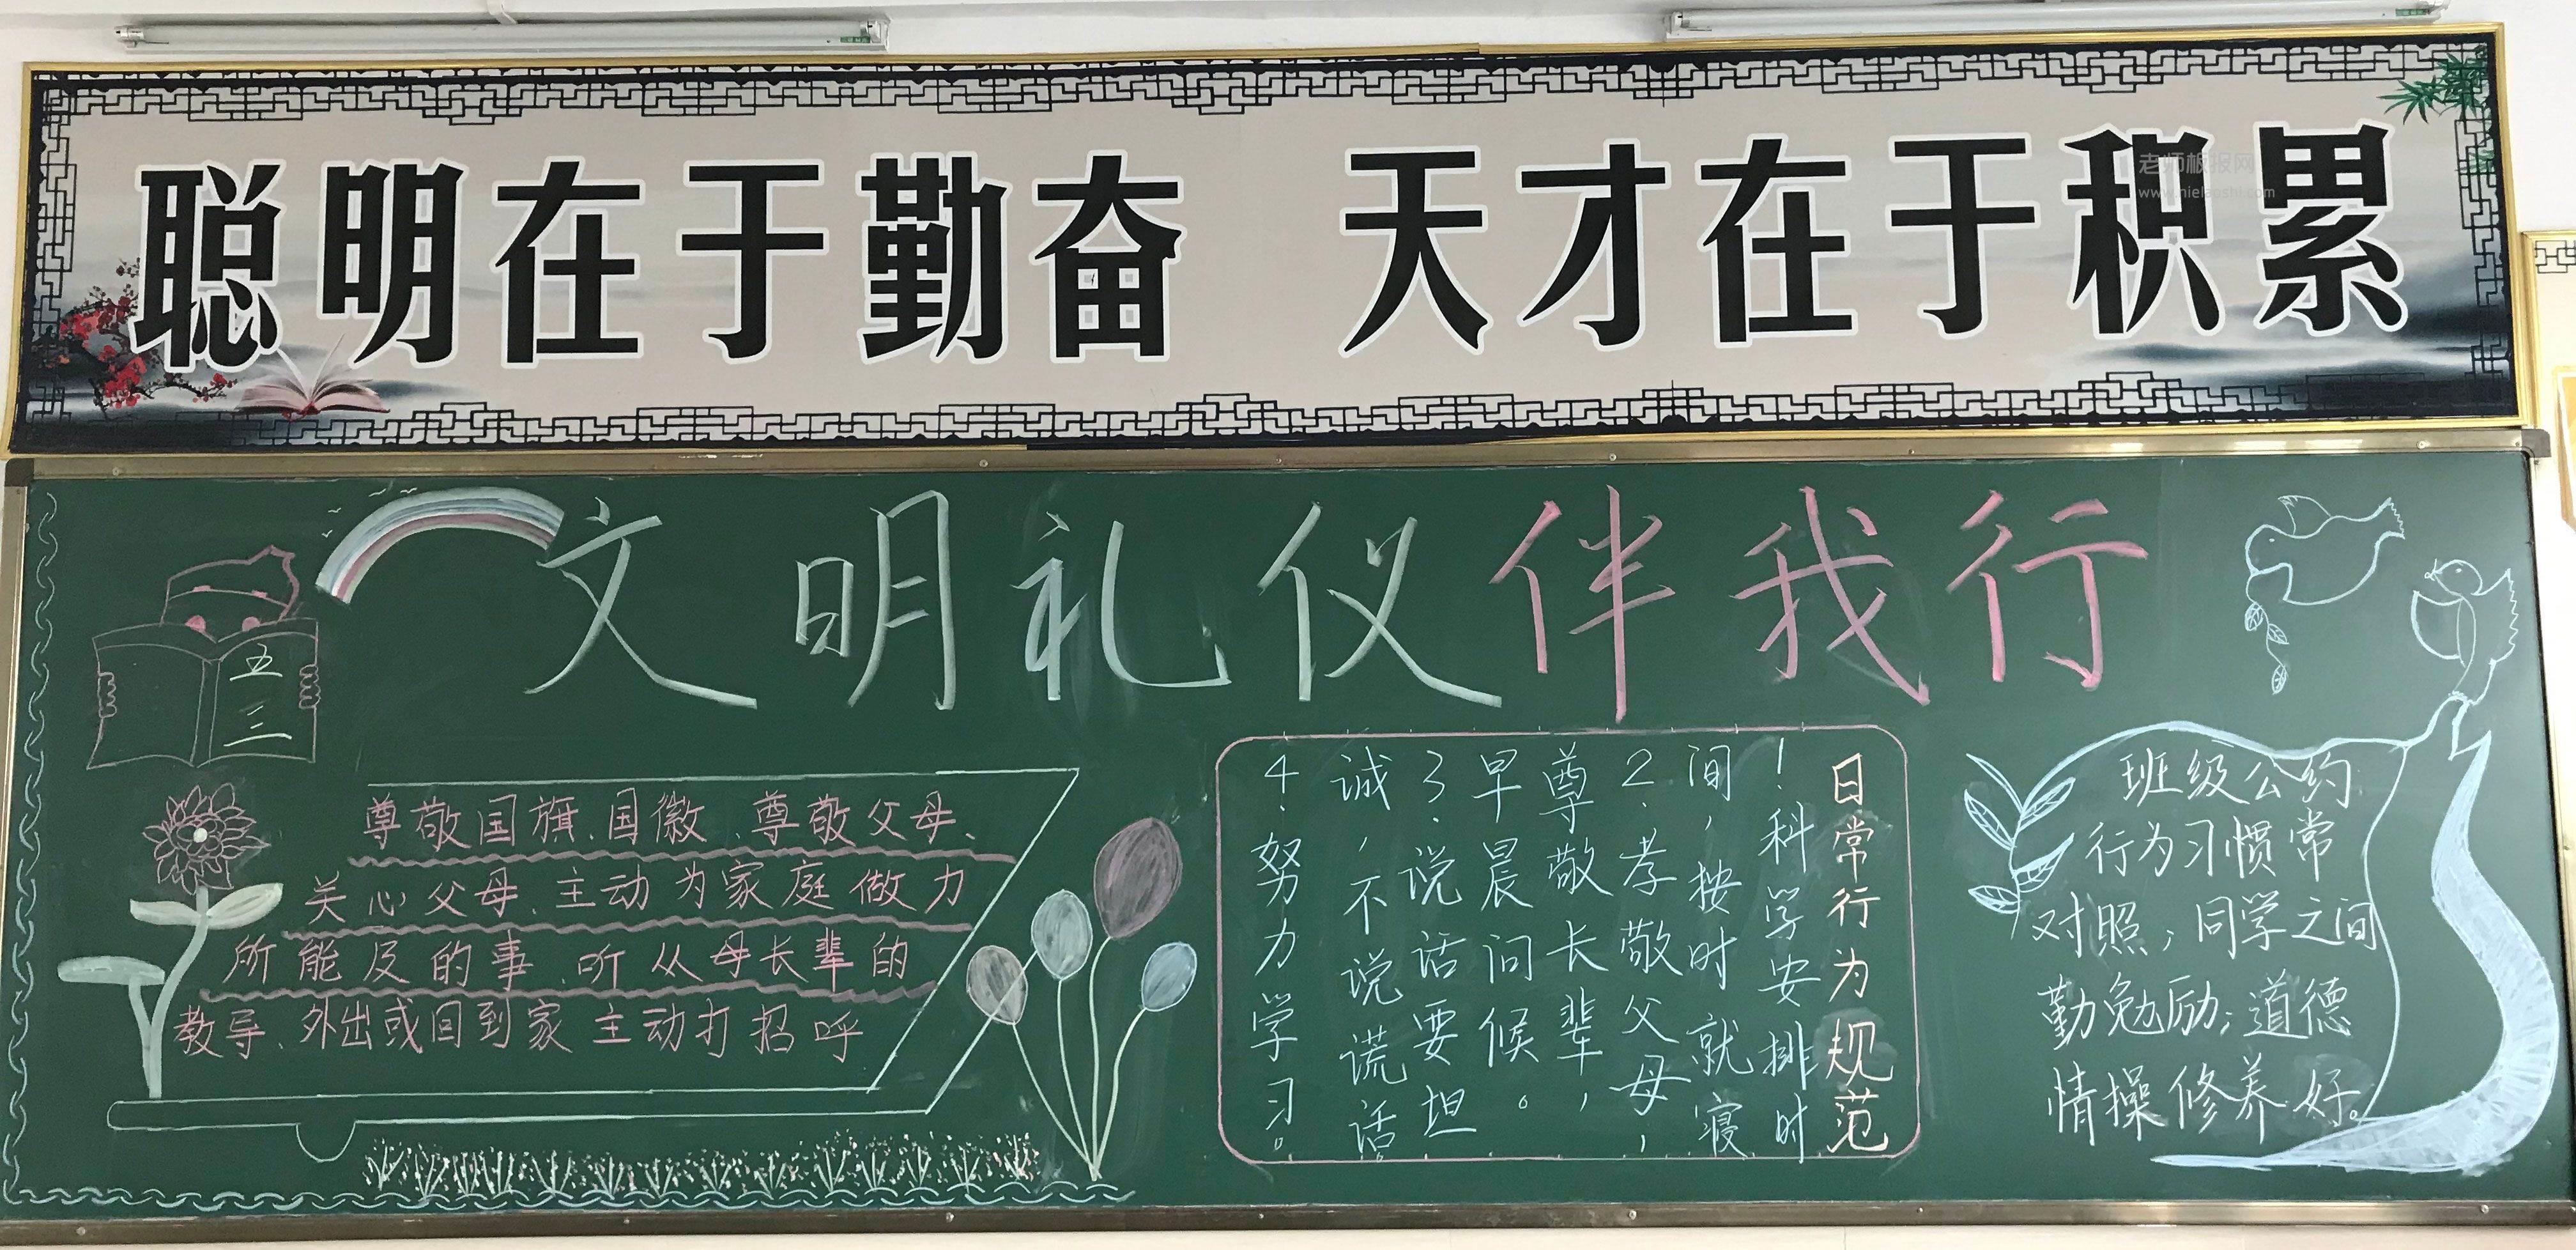 聪明在于勤奋 天才在于积累
老师板报网
文明礼仪伴我行
五
三
尊敬国旗、国徽、尊敬父母、
关心父母、主动为家庭做力
所能及的事、听从母长辈的
教导、外出或回到家主动打招呼
日常行为规范
1.科学安排时
间,按时就寝
2.孝敬父母,
尊敬长辈,
早晨问候。
3.说话要坦
诚,不说谎话
4.努力学习。
班级公约
行为习惯常
对照;同学之间
勤勉励;道德
情操修养好。